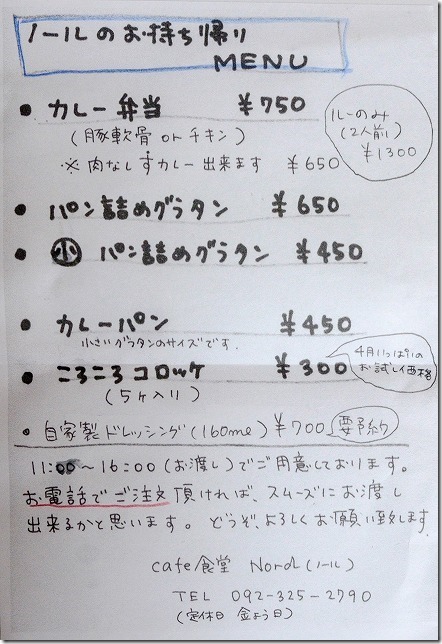 ノールのお持ち帰り
MENU
● カレー弁当 ¥750
(豚軟骨 or チキン)
※肉なしすカレー出来ます ¥650
ルーのみ
(2人前)
¥1300
● パン詰めグラタン ¥650
● 小 パン詰めグラタン ¥450
● カレーパン ¥450
小さいグラタンのサイズです.
● ころころコロッケ ¥300
(5ヶ入り)
4月いっぱいの
お試し価格
・自家製ドレッシング(160ml) ¥700 要予約
11:00～16:00(お渡し)でご用意しております。
お電話でご注文頂ければ、スムーズにお渡し
出来るかと思います。どうぞ、よろしくお願い致します。
cafe/食堂 Nord(ノール)
TEL 092-325-2790
(定休日 金よう日)